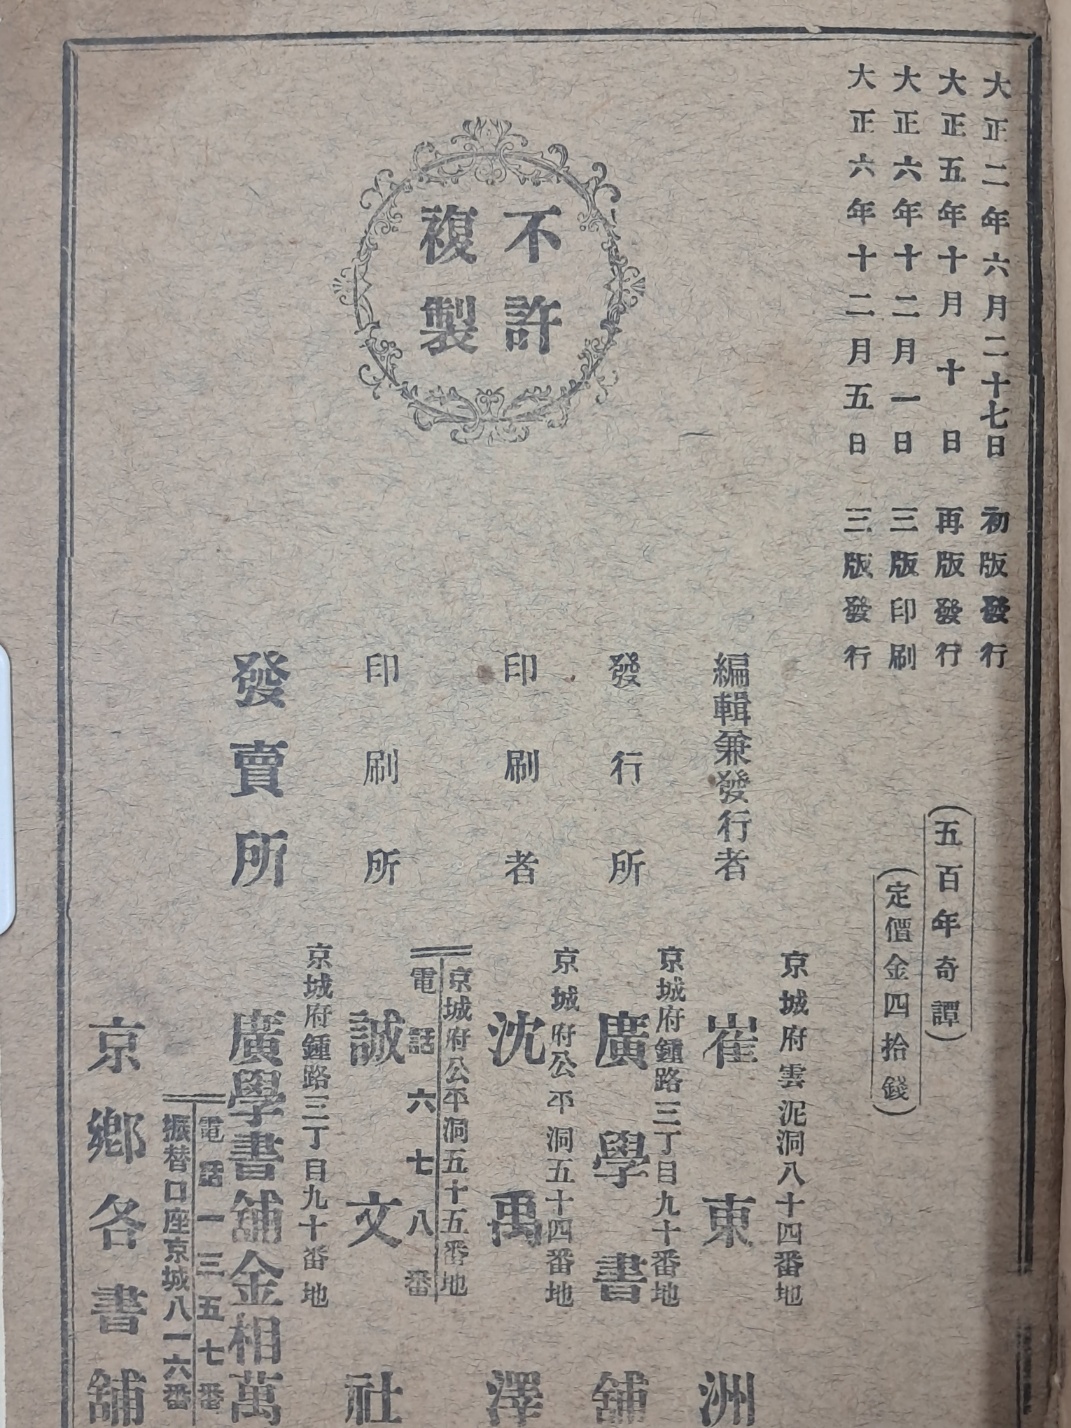 大正二年六月二十七日 初版發行
大正五年十月十日 再版發行
大正六年十二月一日 三版印刷
大正六年十二月五日 三版發行
不許
複製
(五百年奇譚)
(定價金四拾錢)
京城府雲泥洞八十四番地
編輯兼發行者 崔東洲
京城府鍾路三丁目九十番地
發行所 廣學書舖
京城府公平洞五十四番地
印刷者 沈禹澤
京城府公平洞五十五番地
電話六七八番
印刷所 誠文社
京城府鍾路三丁目九十番地
發賣所 廣學書舖金相萬
電話一三五七番
振替口座京城八一六番
京鄉各書舖